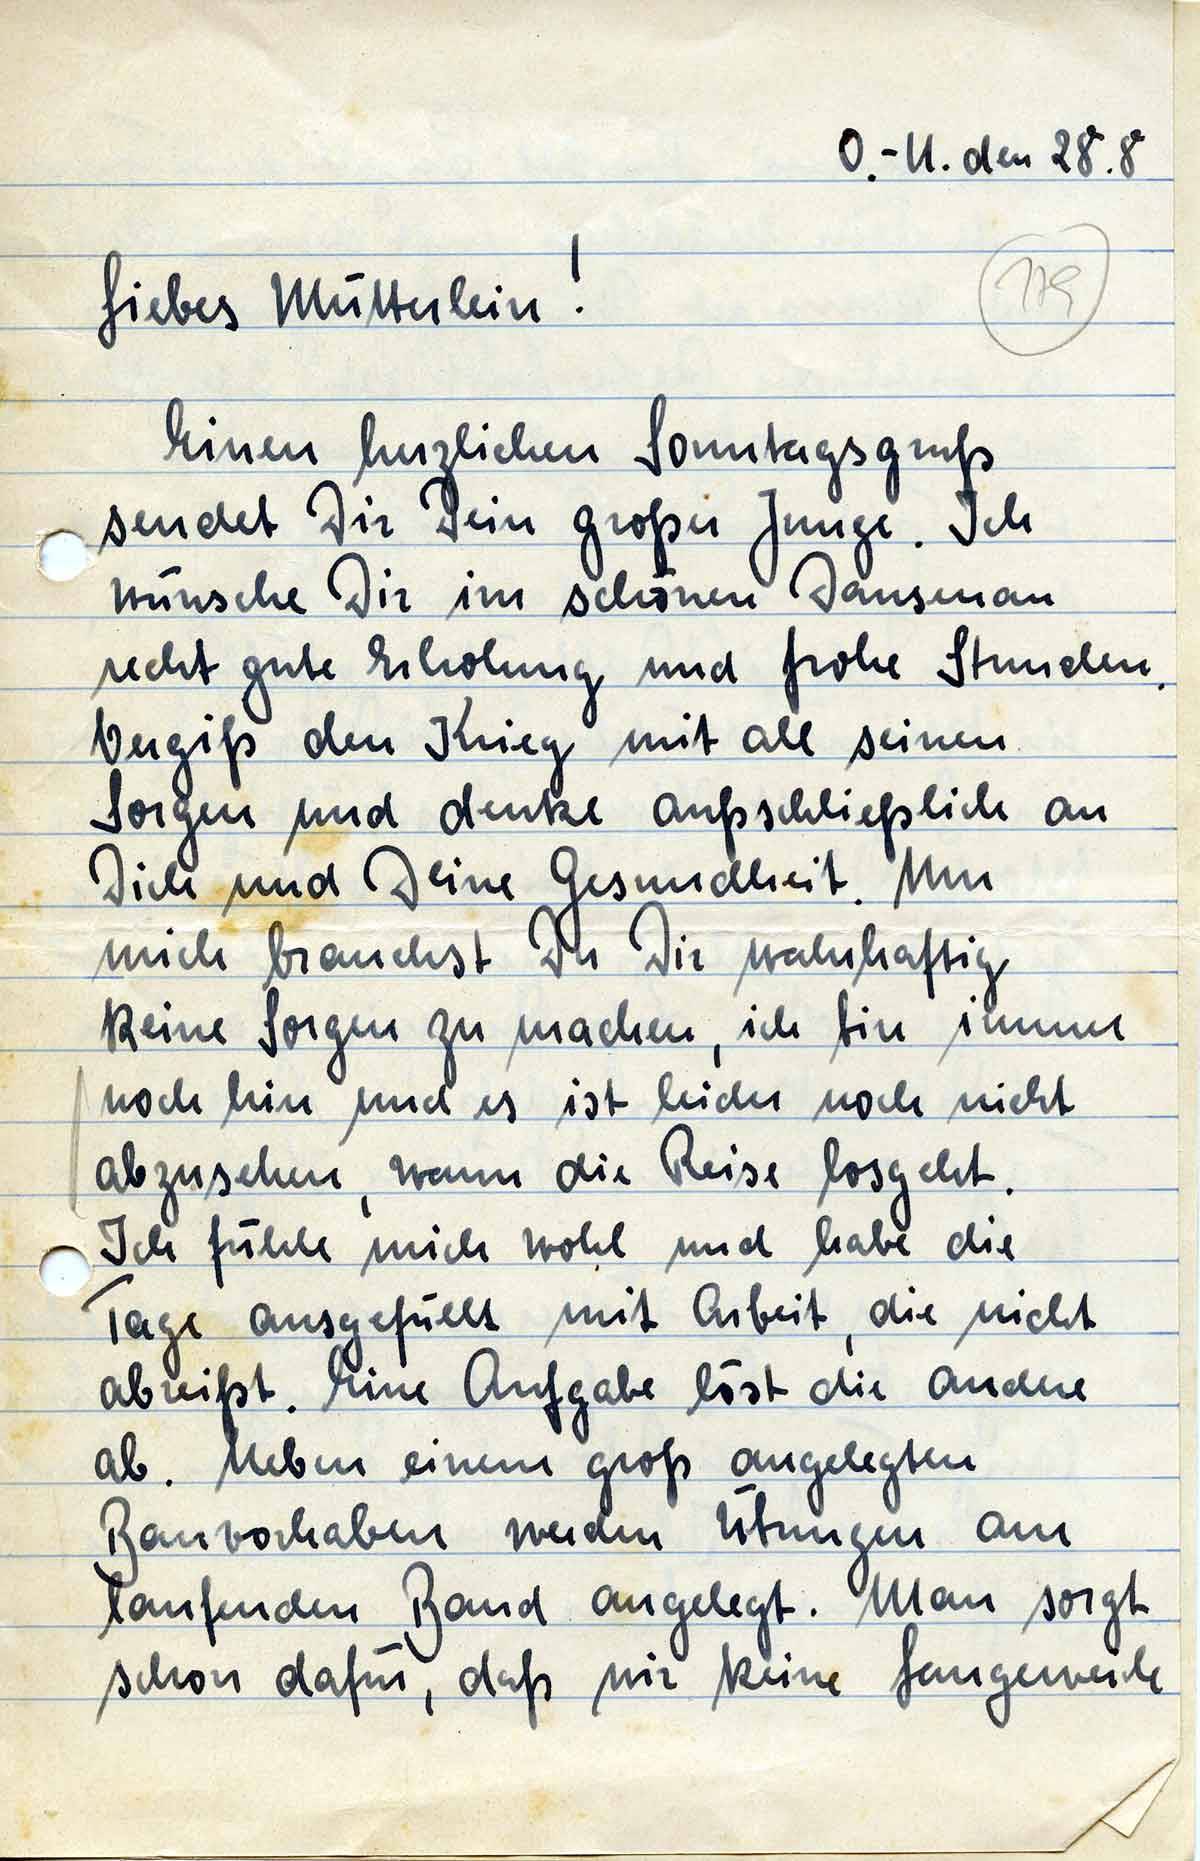 O.-U. den 28.8
179
Liebes Mütterlein!
Einen herzlichen Sonntagsgruß
sendet Dir Dein großer Junge. Ich
wünsche Dir im schönen Dansenau
recht gute Erholung und frohe Stunden.
Vergiß den Krieg mit all seinen
Sorgen und denke außschließlich an
Dich und Deine Gesundheit. Um
mich brauchst Du Dir wahrhaftig
keine Sorgen zu machen, ich bin immer
noch hier und es ist leider noch nicht
abzusehen, wann die Reise losgeht.
Ich fühle mich wohl und habe die
Tage ausgefüllt mit Arbeit, die nicht
abreißt. Eine Aufgabe löst die andere
ab. Neben einem groß angelegten
Bauvorhaben werden Übungen am
laufenden Band angelegt. Man sorgt
schon dafür, daß wir keine Langeweile